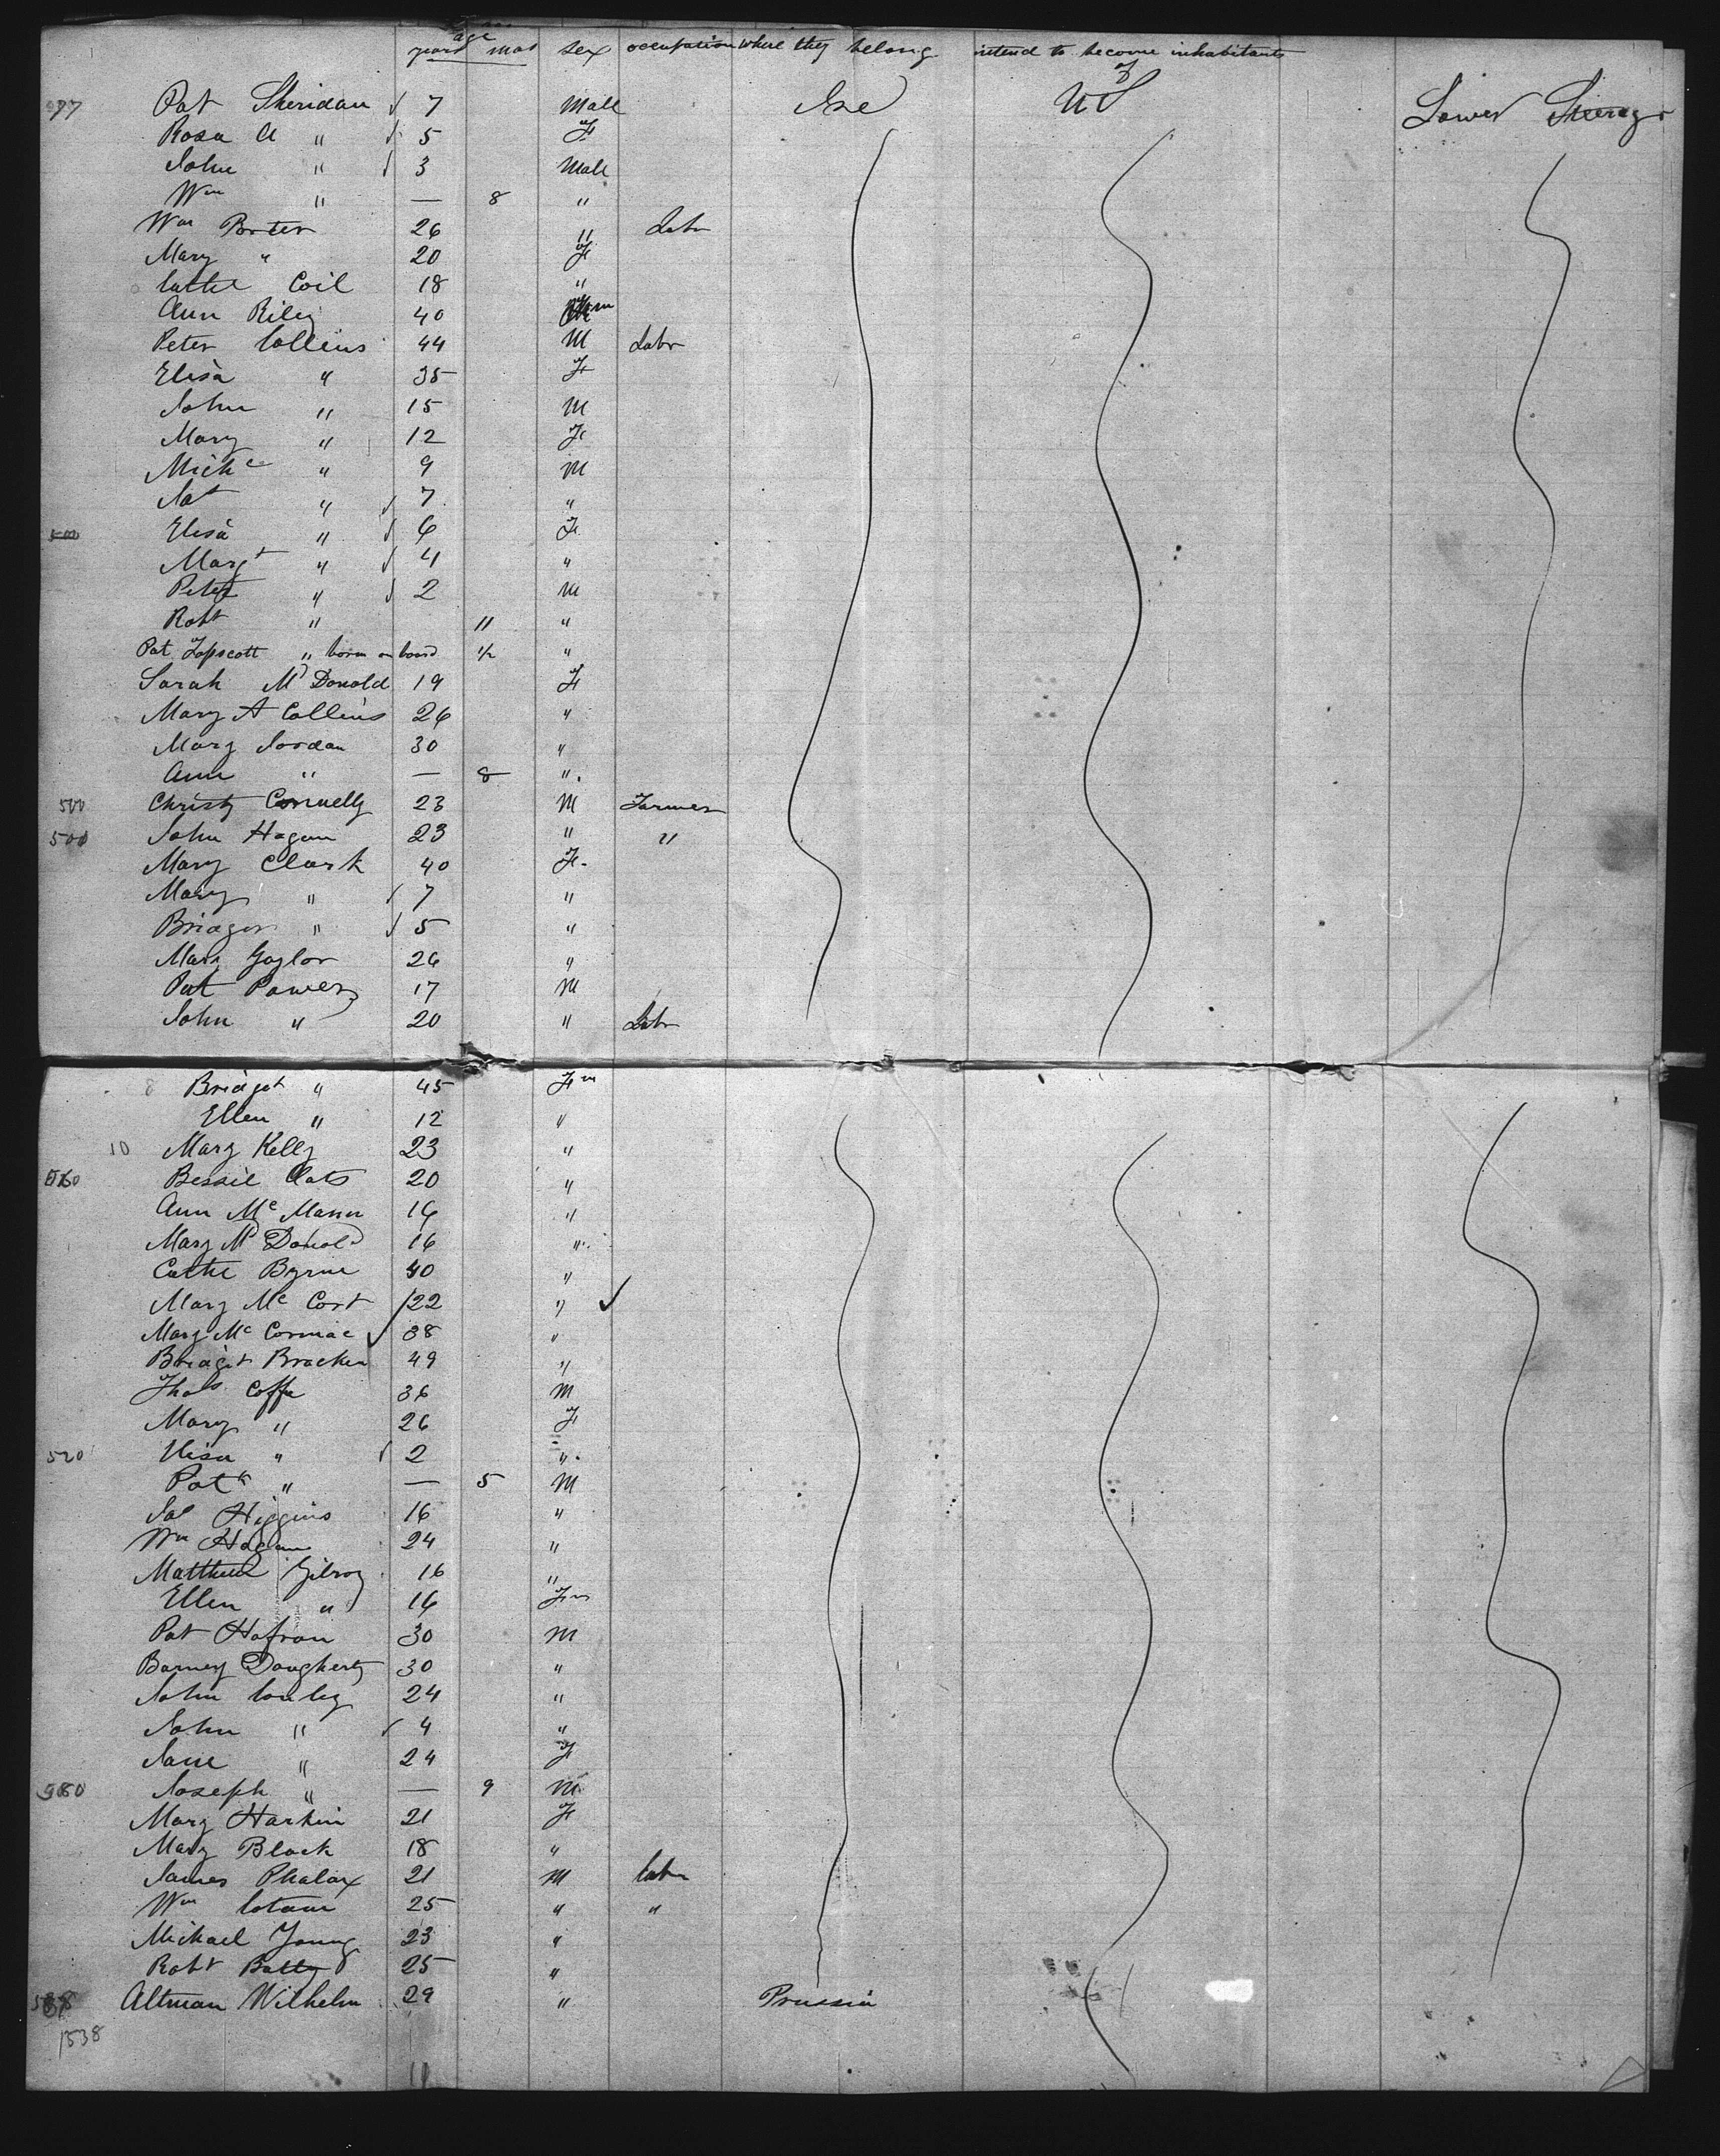 age
years mos sex occupation where they belong intend to become inhabitants of
Pat Sheridan 7 Male Ire U S Lower Steerage
Rosa A " 5 F
John " 3 Male
Wm " — 8 "
Wm Porter 26 " Labr
Mary " 20 F
Cathe Coil 18 "
Ann Riley 40 Fm
Peter Collins 44 M Labr
Elisa " 35 F
John " 15 M
Mary " 12 F
Michl " 9 M
Jas " 7 "
500 Elisa " 6 F
Margt " 4 "
Peter " 2 M
Robt " 11 "
Pat Tapscott " born on board 1/2 "
Sarah McDonald 19 F
Mary A Collins 26 "
Mary Jordan 30 "
Ann " — 8 "
500 Christy Connelly 23 M Farmer
500 John Hagan 23 " "
Mary Clark 40 F
Mary " 7 "
Bridget " 5 "
Mary Gaylor 26 "
Pat Powers 17 M
John " 20 " Labr
8 Bridget " 45 Fm
Ellen " 12 "
10 Mary Kelly 23 "
Bessie Oats 20 "
Ann McMann 16 "
Mary McDonald 16 "
Cathe Byrne 40 "
Mary McCort 22 " ✓
Mary McCormac ✓ 38 "
Bridget Bracken 49 "
Thos Coffe 36 M
Mary " 26 F
520 Elisa " 2 "
Patk " — 5 M
Jas Higgins 16 "
Wm Hogan 24 "
Matthew Gilroy 16 "
Ellen " 16 Fm
Pat Hafron 30 M
Barney Dougherty 30 "
John Conley 24 "
John " 4 "
Jane " 24 F
Joseph " — 9 M
Mary Harkin 21 F
Mary Black 18 "
James Phalax 21 M Labr
Wm Cotam 25 " "
Michael Young 23 "
Robt Batty 25 "
Altman Wilhelm 29 " Prussia
1538